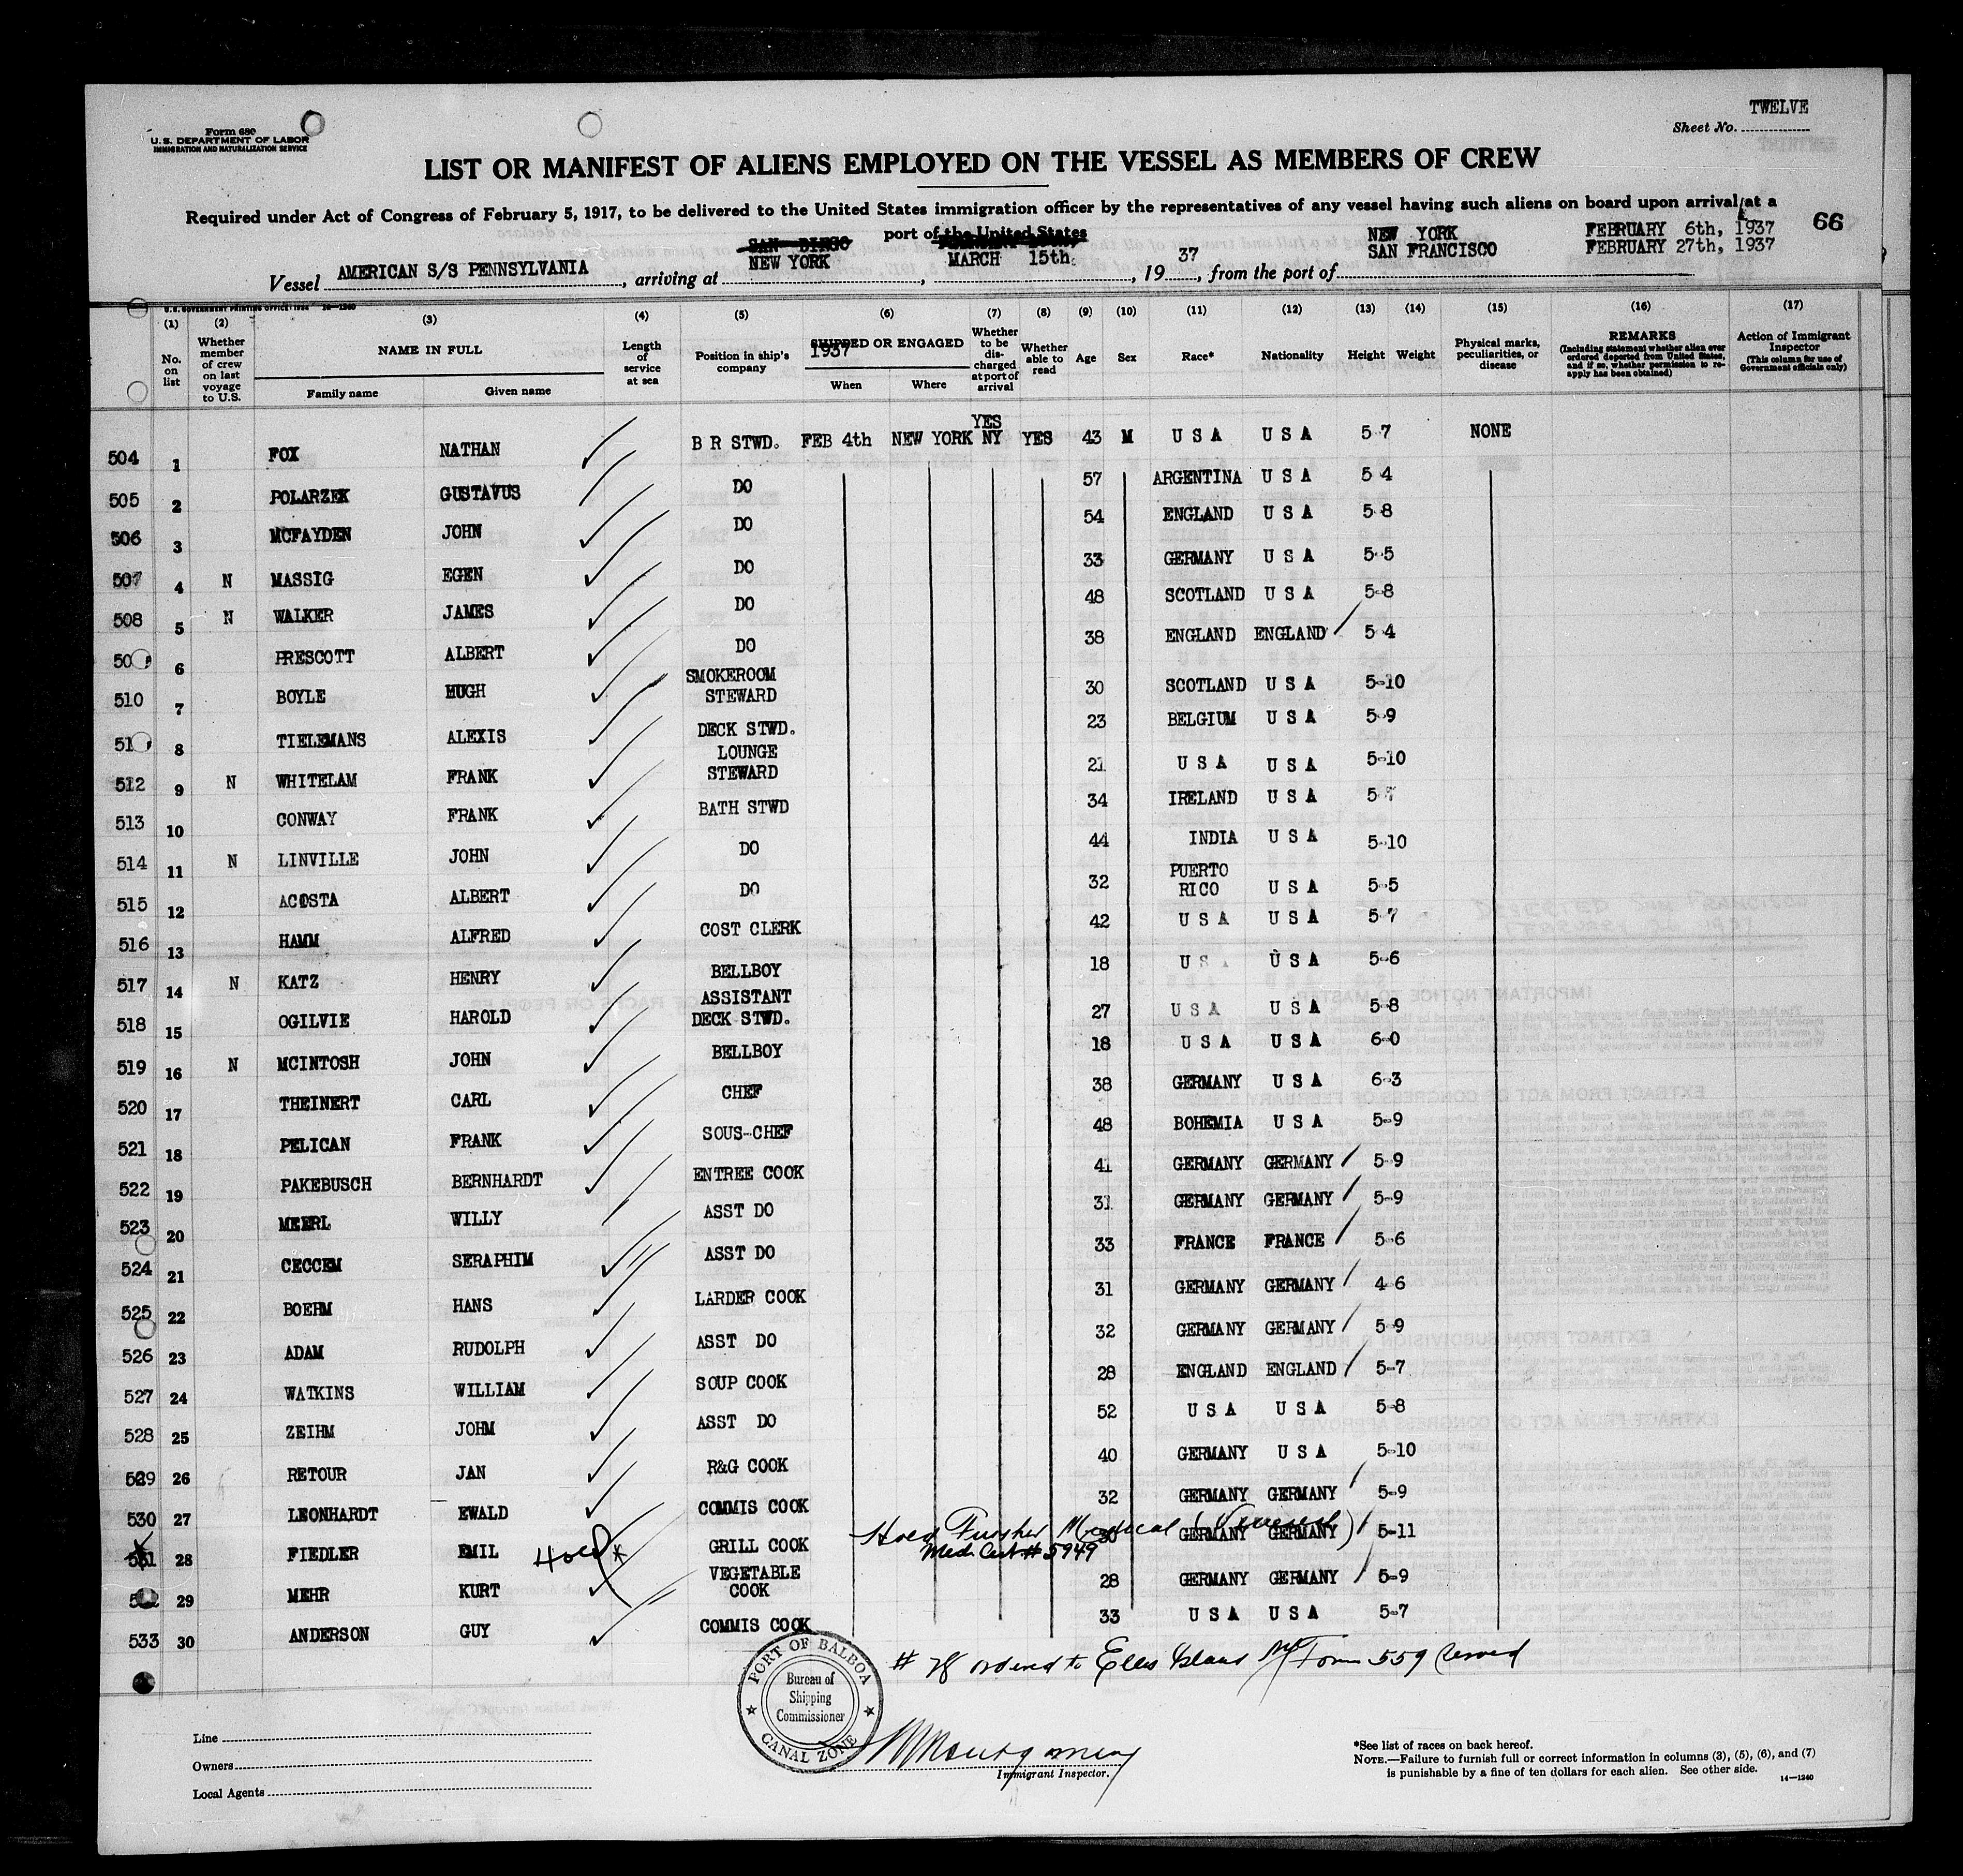 TWELVE
Sheet No.
Form 680
U. S. DEPARTMENT OF LABOR
IMMIGRATION AND NATURALIZATION SERVICE
LIST OR MANIFEST OF ALIENS EMPLOYED ON THE VESSEL AS MEMBERS OF CREW
Required under Act of Congress of February 5, 1917, to be delivered to the United States immigration officer by the representatives of any vessel having such aliens on board upon arrival at a
port of the United States
66
SAN DIEGO
NEW YORK FEBRUARY 6th, 1937
SAN FRANCISCO FEBRUARY 27th, 1937
Vessel AMERICAN S/S PENNSYLVANIA, arriving at NEW YORK, MARCH 15th, 1937, from the port of
U. S. GOVERNMENT PRINTING OFFICE: 1934 14-1240
(1) No. on list
(2) Whether member of crew on last voyage to U.S.
(3) NAME IN FULL Family name Given name
(4) Length of service at sea
(5) Position in ship's company
(6) SHIPPED OR ENGAGED 1937 When Where
(7) Whether to be discharged at port of arrival
(8) Whether able to read
(9) Age
(10) Sex
(11) Race*
(12) Nationality
(13) Height
(14) Weight
(15) Physical marks, peculiarities, or disease
(16) REMARKS (Including statement whether alien ever ordered deported from United States, and if so, whether permission to reapply has been obtained)
(17) Action of Immigrant Inspector (This column for use of Government officials only)
504 1 FOX NATHAN B R STWD. FEB 4th NEW YORK YES NY YES 43 M U S A U S A 5 7 NONE
505 2 POLARZEK GUSTAVUS DO 57 ARGENTINA U S A 5 4
506 3 MCFAYDEN JOHN DO 54 ENGLAND U S A 5 8
507 4 N MASSIG EGEN DO 33 GERMANY U S A 5-5
508 5 N WALKER JAMES DO 48 SCOTLAND U S A 5-8
50 6 PRESCOTT ALBERT DO 38 ENGLAND ENGLAND 5 4
510 7 BOYLE HUGH SMOKEROOM STEWARD 30 SCOTLAND U S A 5-10
51 8 TIELEMANS ALEXIS DECK STWD. 23 BELGIUM U S A 5-9
512 9 N WHITELAM FRANK LOUNGE STEWARD 21 U S A U S A 5-10
513 10 CONWAY FRANK BATH STWD 34 IRELAND U S A 5-7
514 11 N LINVILLE JOHN DO 44 INDIA U S A 5-10
515 12 ACOSTA ALBERT DO 32 PUERTO RICO U S A 5-5
516 13 HAMM ALFRED COST CLERK 42 U S A U S A 5-7
517 14 N KATZ HENRY BELLBOY 18 U S A U S A 5-6
518 15 OGILVIE HAROLD ASSISTANT DECK STWD. 27 U S A U S A 5-8
519 16 N MCINTOSH JOHN BELLBOY 18 U S A U S A 6-0
520 17 THEINERT CARL CHEF 38 GERMANY U S A 6-3
521 18 PELICAN FRANK SOUS-CHEF 48 BOHEMIA U S A 5-9
522 19 PAKEBUSCH BERNHARDT ENTREE COOK 41 GERMANY GERMANY 5-9
523 20 MEERL WILLY ASST DO 31 GERMANY GERMANY 5-9
524 21 CECCEM SERAPHIM ASST DO 33 FRANCE FRANCE 5-6
525 22 BOEHM HANS LARDER COOK 31 GERMANY GERMANY 4 6
526 23 ADAM RUDOLPH ASST DO 32 GERMANY GERMANY 5-9
527 24 WATKINS WILLIAM SOUP COOK 28 ENGLAND ENGLAND 5-7
528 25 ZEIHM JOHM ASST DO 52 U S A U S A 5-8
529 26 RETOUR JAN R&G COOK 40 GERMANY U S A 5-10
530 27 LEONHARDT EWALD COMMIS COOK 32 GERMANY GERMANY 5-9
531 28 FIEDLER EMIL Hold GRILL COOK Hold Further Medical 30 GERMANY GERMANY 5-11
Med. Cert. # 5949
29 MEHR KURT VEGETABLE COOK 28 GERMANY GERMANY 5-9
533 30 ANDERSON GUY COMMIS COOK 33 U S A U S A 5-7
# 28 ordered to Ellis Island Form 559 served
PORT OF BALBOA
Bureau of
Shipping
Commissioner
CANAL ZONE
Montgomery
Immigrant Inspector.
Line
Owners
Local Agents
*See list of races on back hereof.
NOTE.—Failure to furnish full or correct information in columns (3), (5), (6), and (7)
is punishable by a fine of ten dollars for each alien. See other side.
14-1240